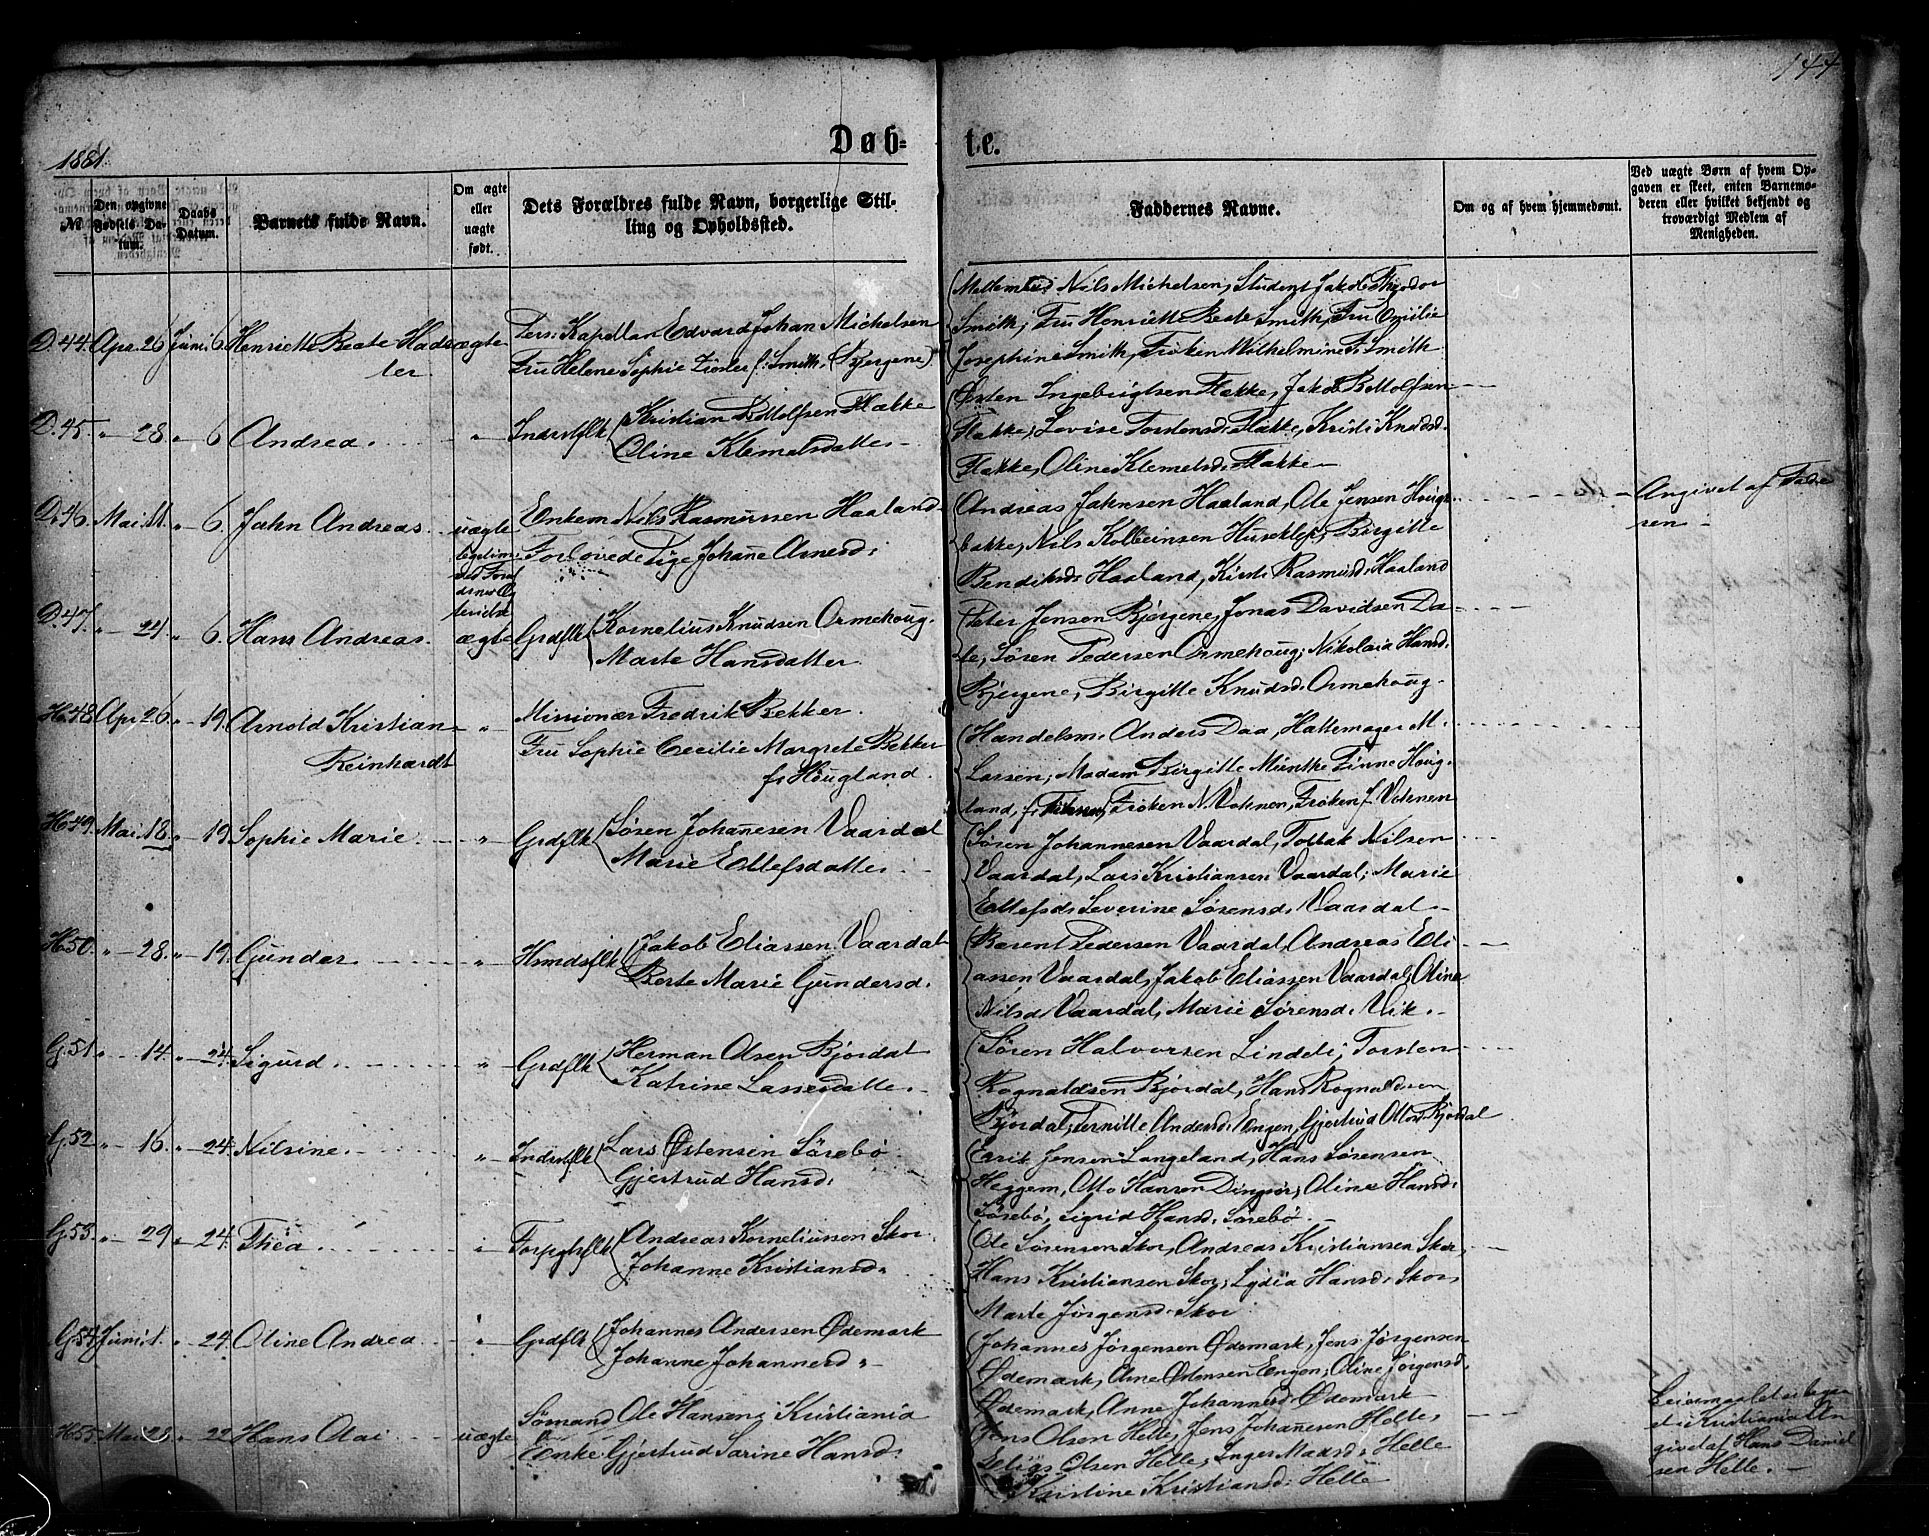 144
1881.
Døb-
te.
№
Den opgivne Fødsels-Datum.
Daabs Datum.
Barnets fulde Navn.
Om ægte eller uægte født.
Dets Forældres fulde Navn, borgerlige Stilling og Opholdssted.
Faddernes Navne.
Om og af hvem hjemmedøbt.
Ved uægte Børn af hvem Opgaven er skeet, enten Barnemoderen eller hvilket bekjendt og troværdigt Medlem af Menigheden.
D.44. Apr. 26 Juni 6. Henriette Beate Hadeler. ægte
Pers: Kapellan Edvard Johan Michelsen
Fru Helene Sophie f: Smith. (Bjergene)
Nils Michelsen, Student Jakob Thjodor
Smith; Fru Henriette Beate Smith, Fru Emilie
Josephine Smith, Frøken Wilhelmine F. Smith
D.45. „ 28. „ 6 Andrea. „
Indrstflk Kristian Ditlofsen Flakke
Oline Klemetsdatter
Østen Ingebrigtsen Flakke, Jakob Ditlofsen
Flakke; Lovise Torstensd: Flakke, Kristi Knudsd:
Flakke, Oline Klemetsd: Flakke
D.46. Mai 11. „ 6. John Andreas. uægte
Enkem Nils Rasmussen Haaland
Forlovede Pige Johanne Arnesd:
Andreas Johnsen Haaland, Ole Jensen Hougs-
bakke, Nils Kolbeinsen Huseklep; Birgitte
Bendiksd: Haaland, Kirsti Rasmusd: Haaland
Angivet af Fade
ren
D.47. „ 21. „ 6. Hans Andreas. ægte
Grdflk Kornelius Knudsen Ormehoug.
Marte Hansdatter
Peter Jensen Bjergene, Jonas Davidsen Da-
le, Søren Pedersen Ormehoug; Nikolaia Hansd:
Bjergene, Birgitte Knudsd: Ormehoug.
H.48 Apr 26. „ 19. Arnold Kristian
Reinhardt „
Missionær Fredrik Bekker.
Fru Sophie Cecilie Margrete Bekker
f: Hougland.
Handelsm: Anders Daa, Hattemager M.
Larsen; Madam Birgitte Munthe Finne Houg-
land, Frøken N. Vohnen, Frøken J. Vohnen
H.49. Mai 18. „ 19 Sophie Marie. „
Grdflk Søren Johannesen Vaardal
Marie Ellefsdatter.
Søren Johannesen Vaardal, Tollak Nilsen
Vaardal, Lars Kristiansen Vaardal; Marie
Ellefsd: Severine Sørensd: Vaardal.
H.50. „ 28. „ 19. Gunder. „
Hsmdsflk Jakob Eliassen Vaardal
Berte Marie Gundersd.
Barent Pedersen Vaardal, Andreas Eli
assen Vaardal, Jakob Eliassen Vaardal; Oline
Nilsd Vaardal, Marie Sørensd: Vik.
G.51. „ 14. „ 24. Sigurd. „
Grdflk Herman Olsen Bjordal
Katrine Lassesdatter.
Søren Halvorsen Lindeli; Torsten
Rognaldsen Bjordal, Hans Rognaldsen
Bjordal; Pernille Andersd: Engen, Gjertrud Ottosd: Bjordal
G.52 „ 16. „ 24. Nilsine. „
Indrstflk Lars Østensen Sørebø
Gjertrud Hansd:
Eerik Jensen Langeland, Hans Sørensen
Heggem, Otto Hansen Dingsør; Oline Hansd:
Sørebø, Sigrid Hansd: Sørebø.
G.53. „ 29 „ 24. Thea. „
Forpgtrflk Andreas Korneliussen Skor.
Johanne Kristiansd:
Ole Sørensen Skor, Andreas Kristiansen Skor,
Hans Kristiansen Skor; Lydia Hansd: Skor,
Marte Jørgensd: Skor
G.54 Juni 1. „ 24. Oline Andrea „
Grdflk Johannes Andersen Ødemark
Johanne Johannesd:
Johannes Jørgensen Ødemark, Jens Jørgensen
Ødemark, Arne Østensen Engen; Oline Jørgensd:
Ødemark, Anne Johannesd: Ødemark
H.55. Mai 28. „ 22 Hans Olai uægte
Sømand Ole Hansen i Kristiania
Enke Gjertrud Sarine Hansd:
Jens Olsen Helle, Jens Johannesen Helle,
Elias Olsen Helle, Inger Madsd: Helle
Kristine Kristiansd: Helle
Leiermaalet
i Kristiania. An
givet af Hans Daniel
sen Helle.